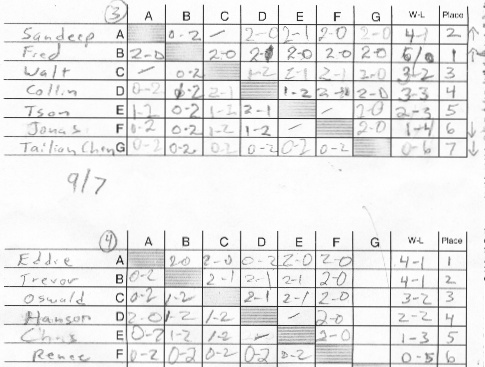 3 A B C D E F G W-L Place
Sandeep A 0-2 / 2-0 2-1 2-0 2-0 4-1 2 ↑
Fred B 2-0 2-0 2-0 2-0 2-0 1 ↑
Walt C / 0-2 1-2 2-1 2-1 2-0 3-2 3
Collin D 0-2 0-2 2-1 1-2 2-0 3-3 4
Tson E 1-2 0-2 1-2 2-1 / 2-0 2-3 5
Jonas F 0-2 0-2 1-2 1-2 / 2-0 1-4 6 ↓
G 0-2 0-2 0-2 0-2 0-2 0-2 0-6 7 ↓
9/7
4 A B C D E F G W-L Place
Eddie A 2-0 2-0 0-2 2-0 2-0 4-1 1
Trevor B 0-2 2-1 2-1 2-1 2-0 4-1 2
Oswald C 0-2 1-2 2-1 2-1 2-0 3-2 3
Hanson D 2-0 1-2 1-2 / 2-0 2-2 4
Chris E 0-2 1-2 1-2 / 2-0 1-3 5
Renee F 0-2 0-2 0-2 0-2 0-2 0-5 6